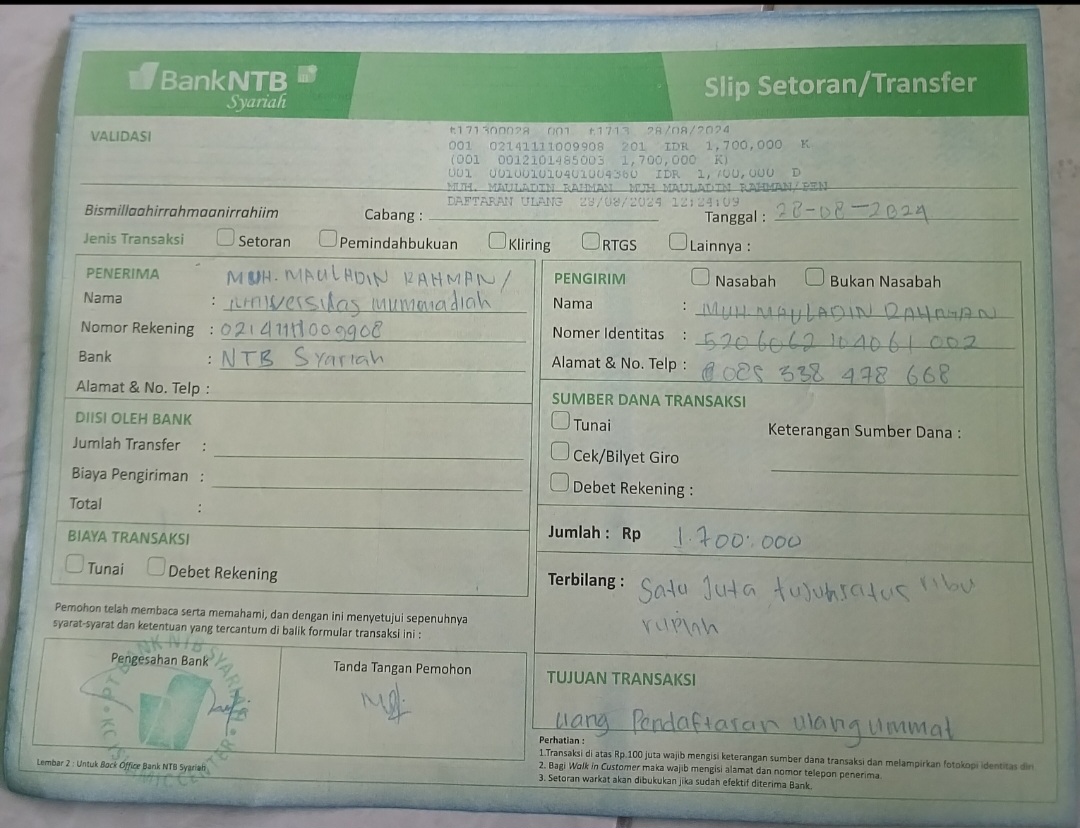 BankNTB
Syariah
Slip Setoran/Transfer
VALIDASI
t171300028 001 t1713 28/08/2024
001 02141111009908 201 IDR 1,700,000 K
(001 0012101485003 1,700,000 K)
001 001001010401004380 IDR 1,700,000 D
MUH. MAULADIN RAHMAN MUH MAULADIN RAHMAN/PEN
DAFTARAN ULANG 29/08/2024 12:24:09
Bismillaahirrahmaanirrahiim
Cabang :
Tanggal : 28-08-2024
Jenis Transaksi Setoran Pemindahbukuan Kliring RTGS Lainnya :
PENERIMA MUH. MAULADIN RAHMAN/
Nama : universitas mummadiah
Nomor Rekening : 02141111009908
Bank : NTB Syariah
Alamat & No. Telp :
DIISI OLEH BANK
Jumlah Transfer :
Biaya Pengiriman :
Total :
BIAYA TRANSAKSI
Tunai Debet Rekening
Pemohon telah membaca serta memahami, dan dengan ini menyetujui sepenuhnya
syarat-syarat dan ketentuan yang tercantum di balik formular transaksi ini :
Pengesahan Bank
Tanda Tangan Pemohon
PT BANK NTB SYARIAH
KC ISLAMIC CENTER
Lembar 2 : Untuk Back Office Bank NTB Syariah
PENGIRIM Nasabah Bukan Nasabah
Nama : MUH MAULADIN RAHMAN
Nomer Identitas : 5206062104061002
Alamat & No. Telp : 085 338 478 668
SUMBER DANA TRANSAKSI
Tunai
Keterangan Sumber Dana :
Cek/Bilyet Giro
Debet Rekening :
Jumlah : Rp 1.700.000
Terbilang : Satu Juta tujuhratus ribu
rupiah
TUJUAN TRANSAKSI
uang Pendaftaran ulang ummat
Perhatian :
1.Transaksi di atas Rp.100 juta wajib mengisi keterangan sumber dana transaksi dan melampirkan fotokopi identitas diri
2. Bagi Walk in Customer maka wajib mengisi alamat dan nomor telepon penerima.
3. Setoran warkat akan dibukukan jika sudah efektif diterima Bank.